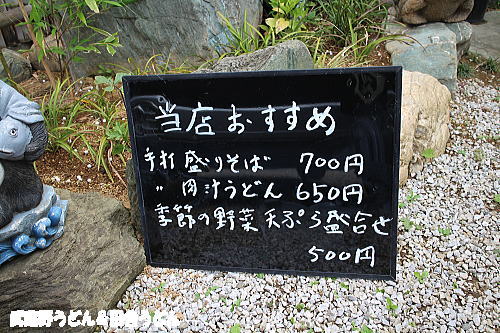 当店おすすめ
手打 盛りそば 700円
〃 肉汁うどん 650円
季節の野菜 天ぷら盛合せ
500円